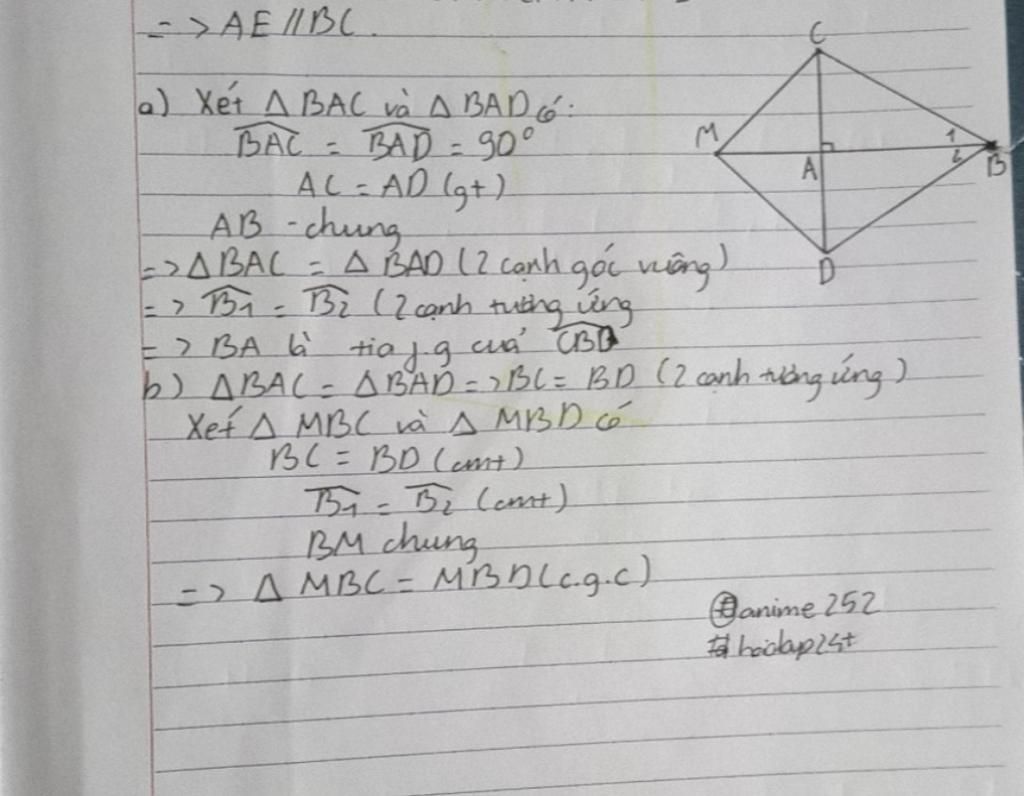 => AE // BC.
a) Xét Δ BAC và Δ BAD có:
BAC = BAD = 90°
AC = AD (gt)
AB - chung
=> Δ BAC = Δ BAD (2 cạnh góc vuông)
=> B1 = B2 (2 cạnh tương ứng
=> BA là tia p.g của CBD
b) Δ BAC = Δ BAD => BC = BD (2 cạnh tương ứng)
Xét Δ MBC và Δ MBD có
BC = BD (cmt)
B1 = B2 (cmt)
BM chung
=> Δ MBC = MBD (c.g.c)
@anime252
#hoidap247
C
M
1
A
2
B
D